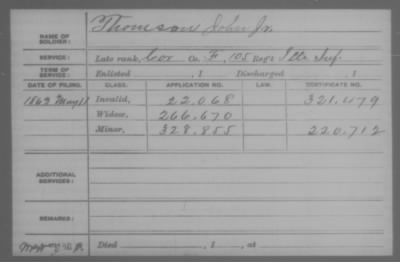 NAME OF SOLDIER: Thomson John Jr.
SERVICE: Late rank, Cor Co. F, 105 Reg't Ills Inf.
TERM OF SERVICE: Enlisted , 1 Discharged , 1
DATE OF FILING. CLASS. APPLICATION NO. LAW. CERTIFICATE NO.
1863 May 11 Invalid, 22,068 321,479
Widow, 266,670
Minor, 328,855 220,712
ADDITIONAL SERVICES:
REMARKS:
Died , 1 , at